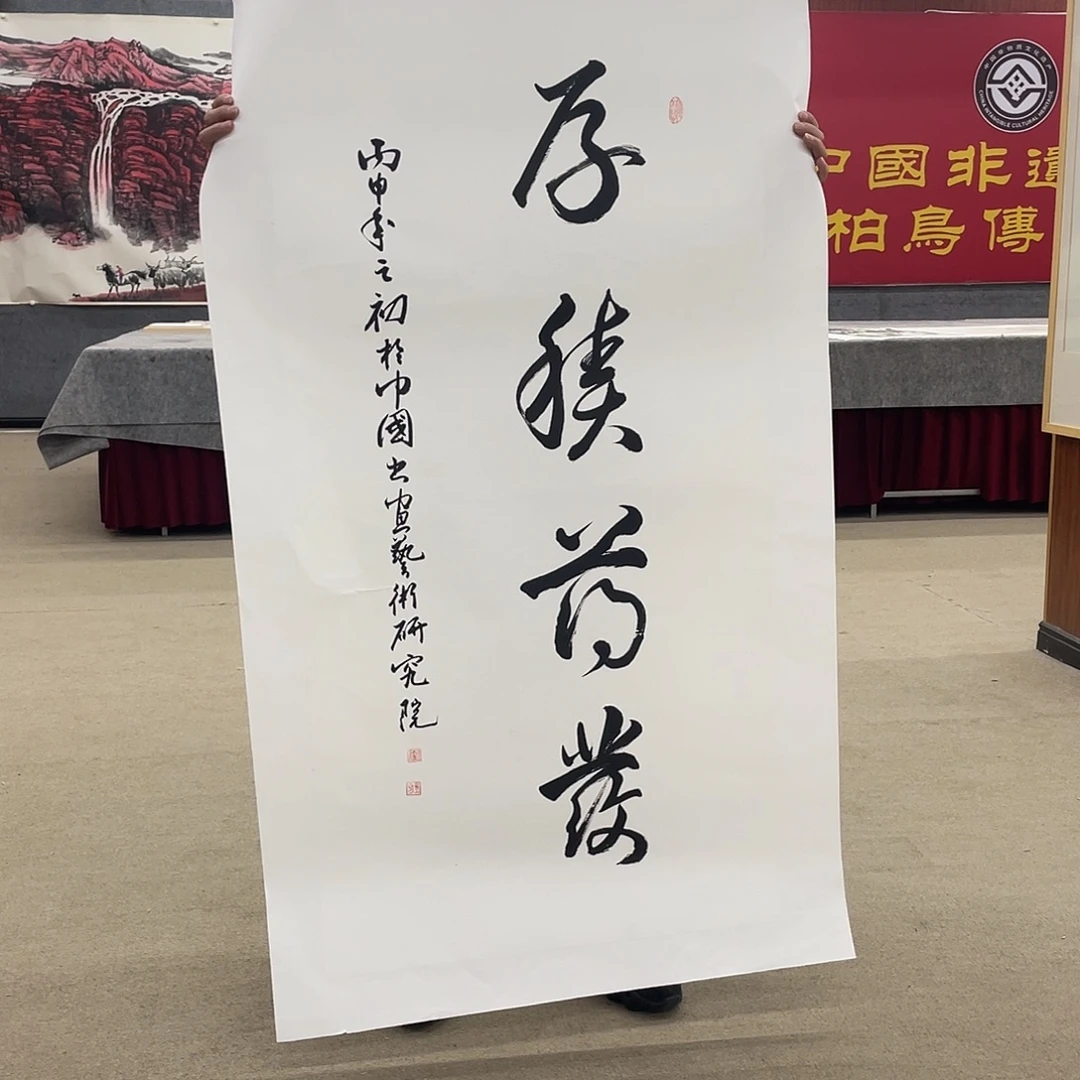 厚積薄發
丙申年之初於中國書畫藝術研究院
CHINA INTANGIBLE CULTURAL HERITAGE
中國非遺
柏鳥傳